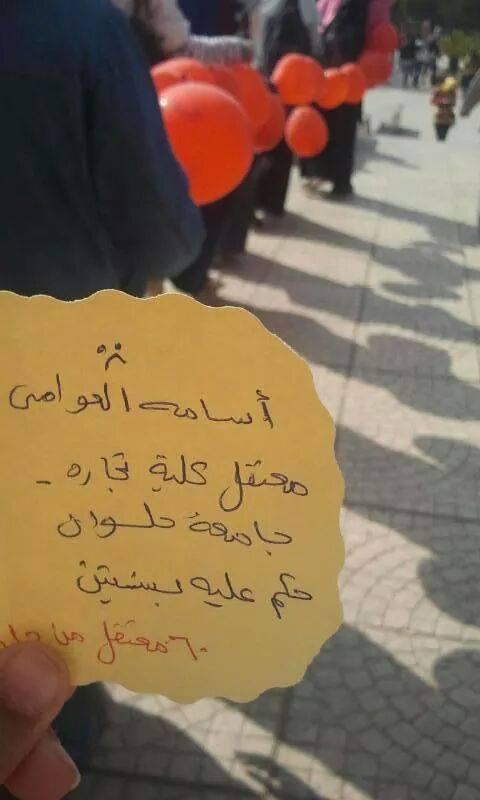 أسامه العوامى
معتقل كلية تجاره -
جامعة حلوان
حكم عليه بسنتين
٦٠ معتقل من